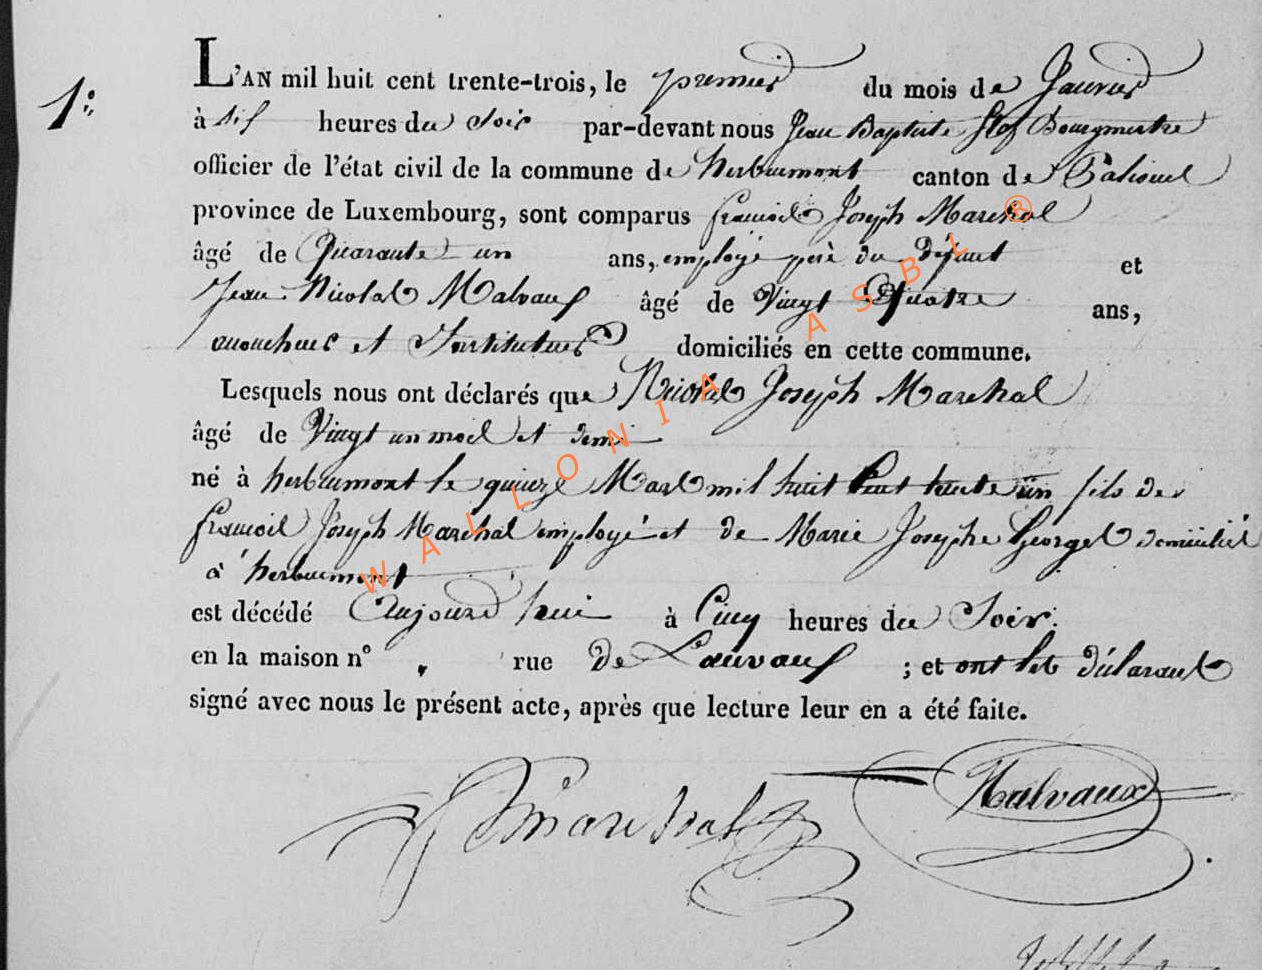 1°
L'AN mil huit cent trente-trois, le premier du mois de Janvier
à six heures du Soir par-devant nous Jean Baptiste Bourgmestre
officier de l'état civil de la commune de herbeumont canton de Paliseul
province de Luxembourg, sont comparus francois Joseph Marechal
âgé de Quarante un ans, employé père du Défunt et
Jean Nicolas Malvaux âgé de Vingt Quatre ans,
accoucheur et Instituteur domiciliés en cette commune.
Lesquels nous ont déclarés que Nicolas Joseph Marechal
âgé de Vingt un mois et demi
né à herbeumont le quinze Mars mil huit Cent trente un fils de
francois Joseph Marechal employé et de Marie Josephe Georges domiciliés
à herbeumont
est décédé Aujourd'hui à Cinq heures du Soir.
en la maison n° rue de Lauvaux ; et ont les déclarants
signé avec nous le présent acte, après que lecture leur en a été faite.
Marechal Malvaux
WALLONIA ASBL ®